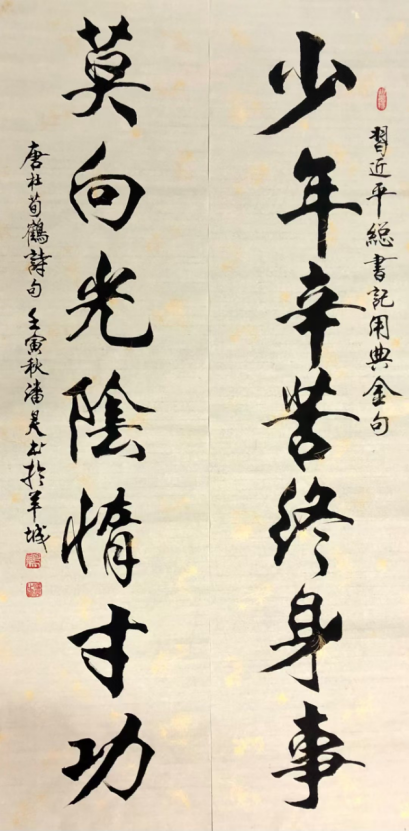 習近平総書記用典金句
少年辛苦終身事
莫向光陰惰寸功
唐杜荀鶴詩句 壬寅秋潘書於羊城